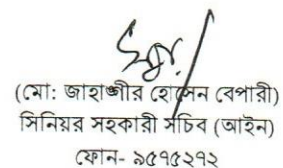 (মো: জাহাঙ্গীর হোসেন বেপারী)
সিনিয়র সহকারী সচিব (আইন)
ফোন- ৯৫৭৫২৭২